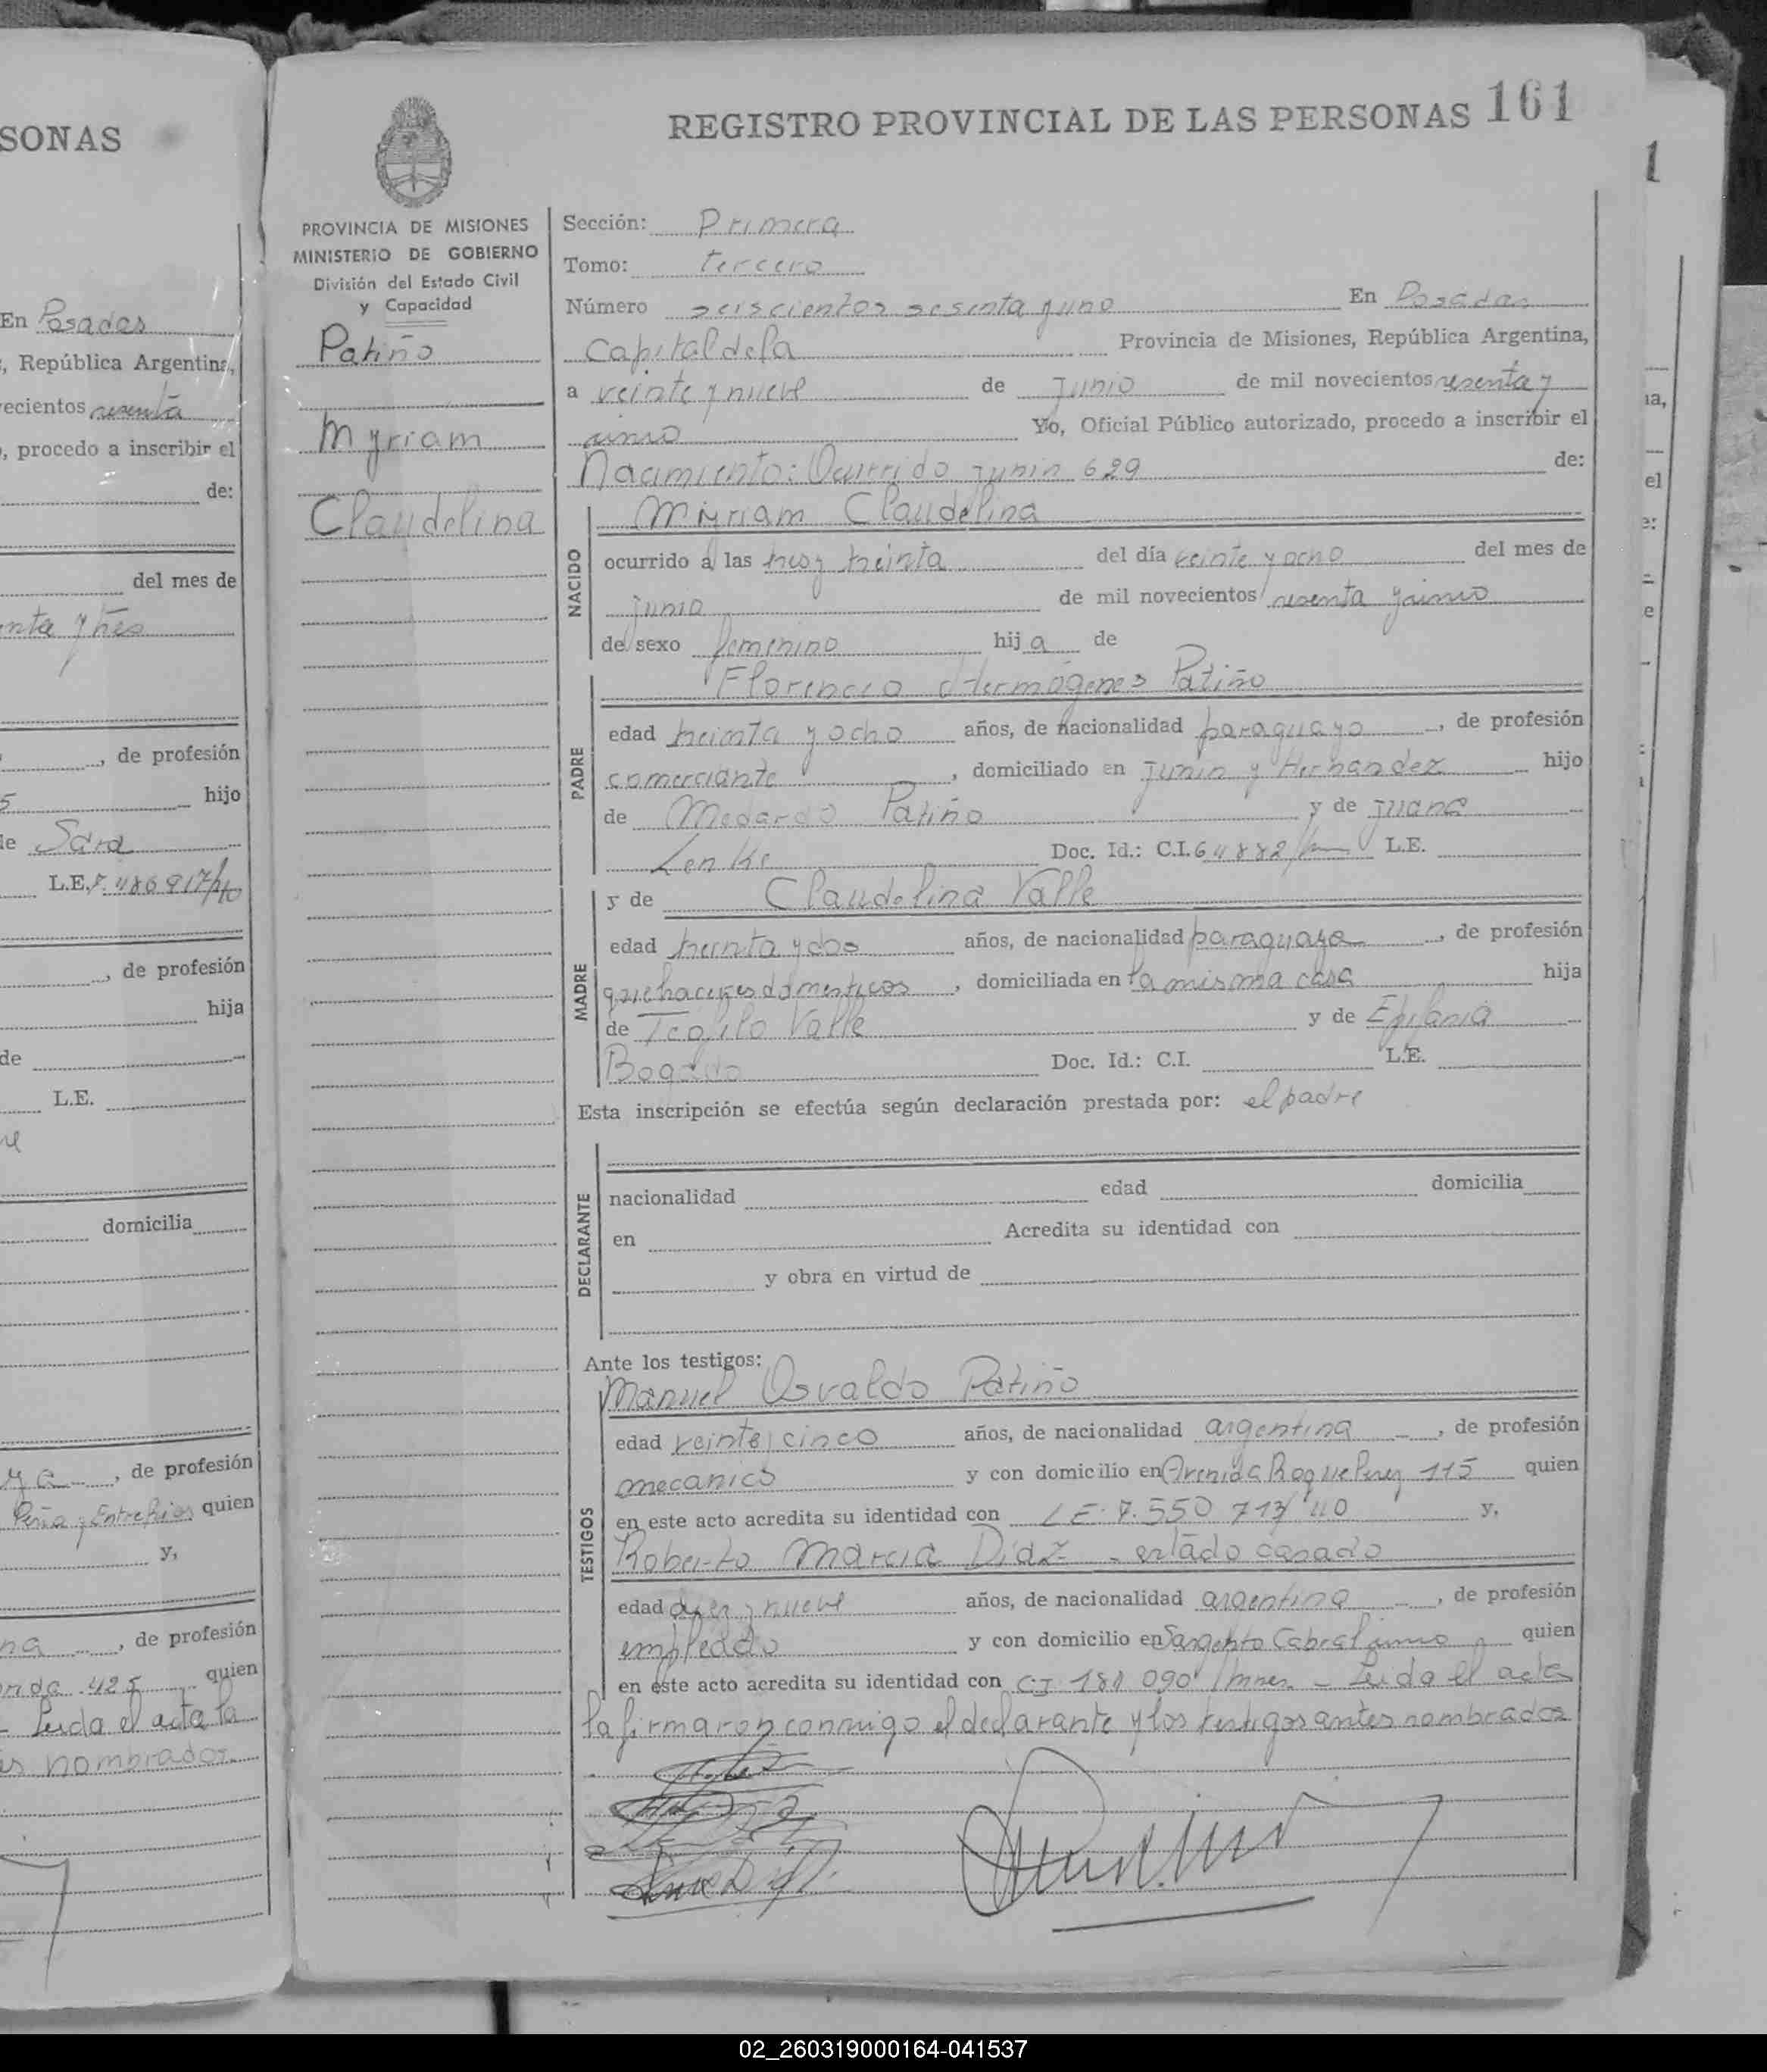 SONAS
En Posadas
, República Argentina,
ecientos sesenta
, procedo a inscribir el
de:
del mes de
nta y tres
, de profesión
hijo
de Sara
L.E. 7.486917/40
, de profesión
hija
de
L.E.
domicilia
, de profesión
Peña y Entre Rios quien
y,
na , de profesión
425 quien
Leida el acta la
nombrados
REGISTRO PROVINCIAL DE LAS PERSONAS 161
PROVINCIA DE MISIONES
MINISTERIO DE GOBIERNO
División del Estado Civil
y Capacidad
Patiño
Myriam
Claudelina
Sección: Primera
Tomo: tercero
Número seiscientos sesenta y uno En Posadas
Capital de la Provincia de Misiones, República Argentina,
a veinte y nueve de Junio de mil novecientos sesenta y
cinco Yo, Oficial Público autorizado, procedo a inscribir el
Nacimiento: Ocurrido Junin 629 de:
NACIDO
Myriam Claudelina
ocurrido a las tres y treinta del día veinte y ocho del mes de
junio de mil novecientos sesenta y cinco
de sexo femenino hija de
PADRE
Florencio Hermógenes Patiño
edad treinta y ocho años, de nacionalidad paraguayo, de profesión
comerciante, domiciliado en Junin y Hernandez hijo
de Medardo Patiño y de Juana
Doc. Id.: C.I. 64882 L.E.
MADRE
y de Claudelina Valle
edad treinta y dos años, de nacionalidad paraguaya, de profesión
quehaceres domesticos, domiciliada en la misma casa hija
de Teofilo Valle y de Epifania
Bogado Doc. Id.: C.I. L.E.
Esta inscripción se efectúa según declaración prestada por: el padre
DECLARANTE
nacionalidad edad domicilia
en Acredita su identidad con
y obra en virtud de
Ante los testigos:
TESTIGOS
Manuel Osvaldo Patiño
edad veinte cinco años, de nacionalidad argentina, de profesión
mecanico y con domicilio en Avenida Roque Perez 115 quien
en este acto acredita su identidad con LE. 7.550 713/40 y,
Roberto Marcia Diaz - estado casado
edad diez y nueve años, de nacionalidad argentina, de profesión
empleado y con domicilio en Sargento Cabral quien
en este acto acredita su identidad con C.I 181 090 /mnes. - Leida el acta
la firmaron conmigo el declarante y los testigos antes nombrados
02_260319000164-041537